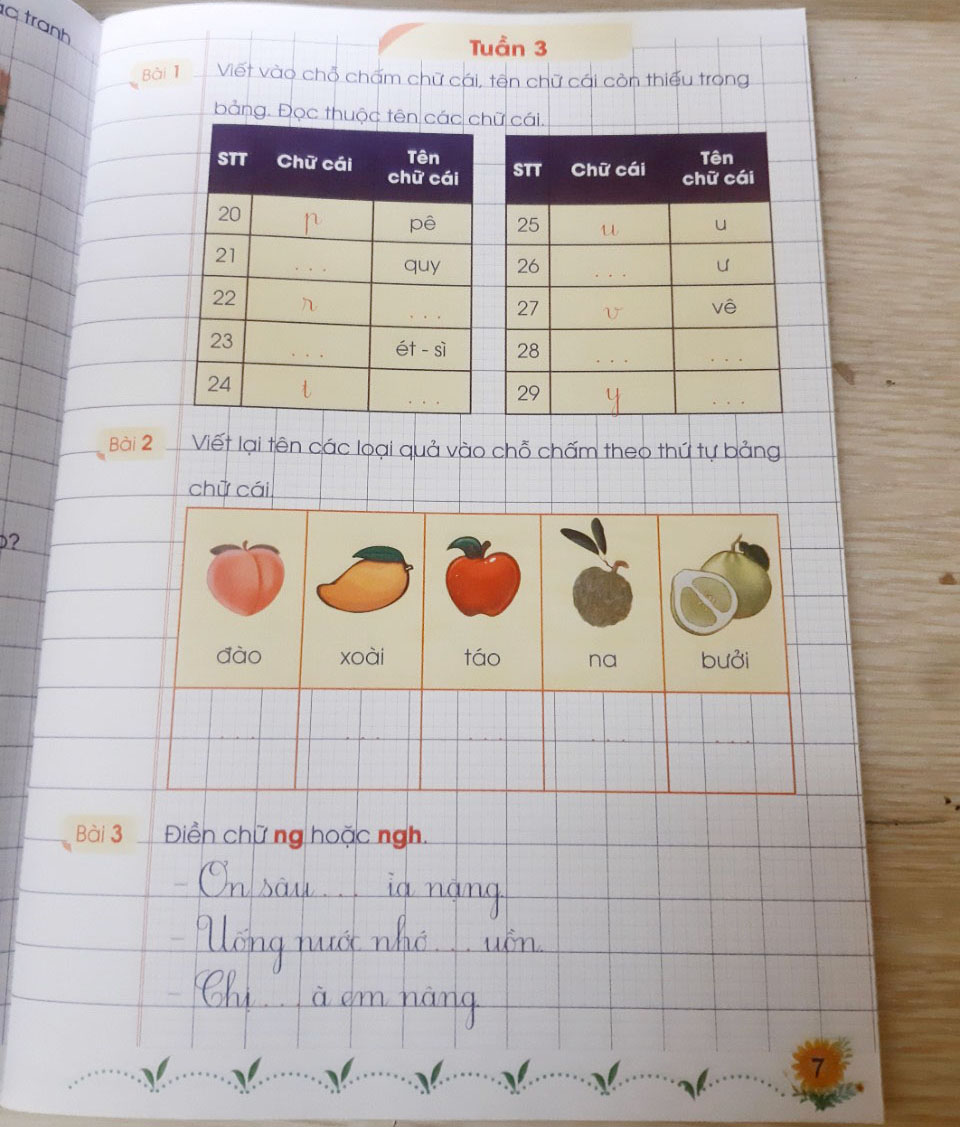 ác tranh
Tuần 3
Bài 1 Viết vào chỗ chấm chữ cái, tên chữ cái còn thiếu trong
bảng. Đọc thuộc tên các chữ cái.
STT Chữ cái Tên chữ cái
20 p pê
21 ... quy
22 r ...
23 ... ét - sì
24 t ...
STT Chữ cái Tên chữ cái
25 u u
26 ... ư
27 v vê
28 ... ...
29 y ...
Bài 2 Viết lại tên các loại quả vào chỗ chấm theo thứ tự bảng
chữ cái.
đào xoài táo na bưởi
... ... ... ... ...
?
Bài 3 Điền chữ ng hoặc ngh.
- Ơn sâu ... ĩa nặng.
- Uống nước nhớ ... uồn.
- Chị ... ã em nâng.
7